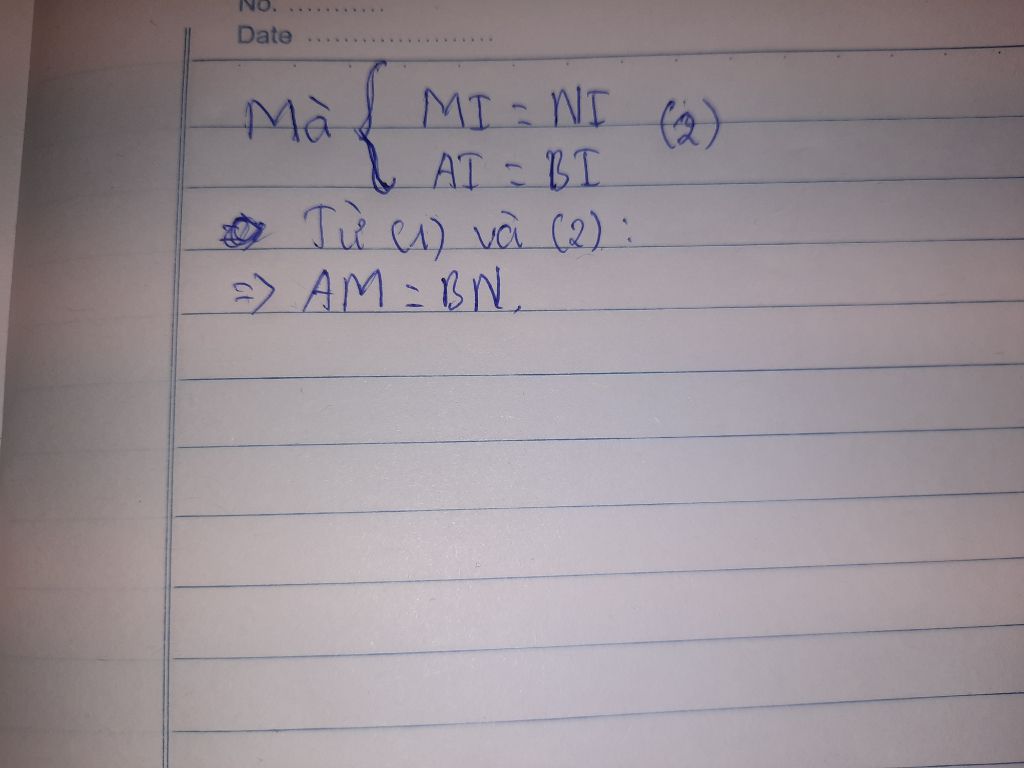 No. ............
Date ......................
Mà { MI = NI (2)
AI = BI
Từ (1) và (2) :
=> AM = BN.